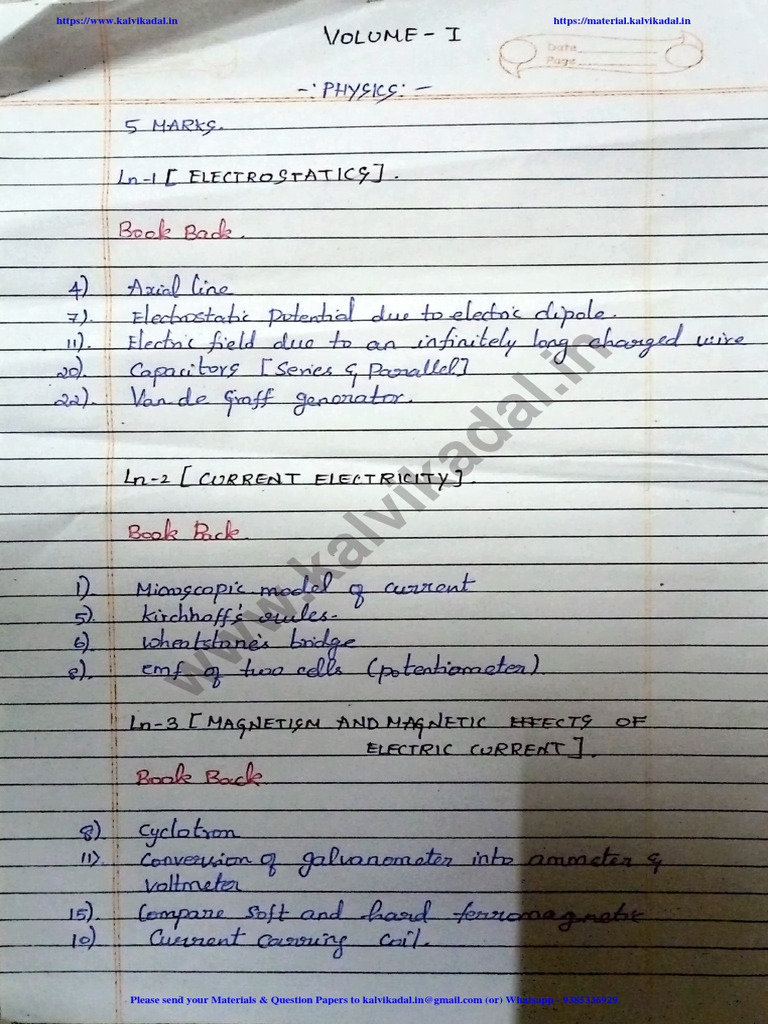 https://www.kalvikadal.in https://material.kalvikadal.in
VOLUME - I
Date
Page
-: PHYSICS: -
5 MARKS.
Ln-1 [ ELECTROSTATICS ].
Book Back.
4) Axial line
7). Electrostatic potential due to electric dipole.
11). Electric field due to an infinitely long charged wire
20). Capacitors [Series & Parallel]
22). Van de Graff generator.
Ln-2 [ CURRENT ELECTRICITY ].
Book Back.
1). Microscopic model of current
5). Kirchhoff's rules.
6). Wheatstone's bridge
8). emf of two cells (potentiometer).
Ln-3 [ MAGNETISM AND MAGNETIC EFFECTS OF
ELECTRIC CURRENT ].
Book Back
8) Cyclotron
11) Conversion of galvanometer into ammeter &
voltmeter
15). Compare soft and hard ferromagnetic
10) Current carring coil.
www.kalvikadal.in
Please send your Materials & Question Papers to kalvikadal.in@gmail.com (or) Whatsapp - 9385336929.